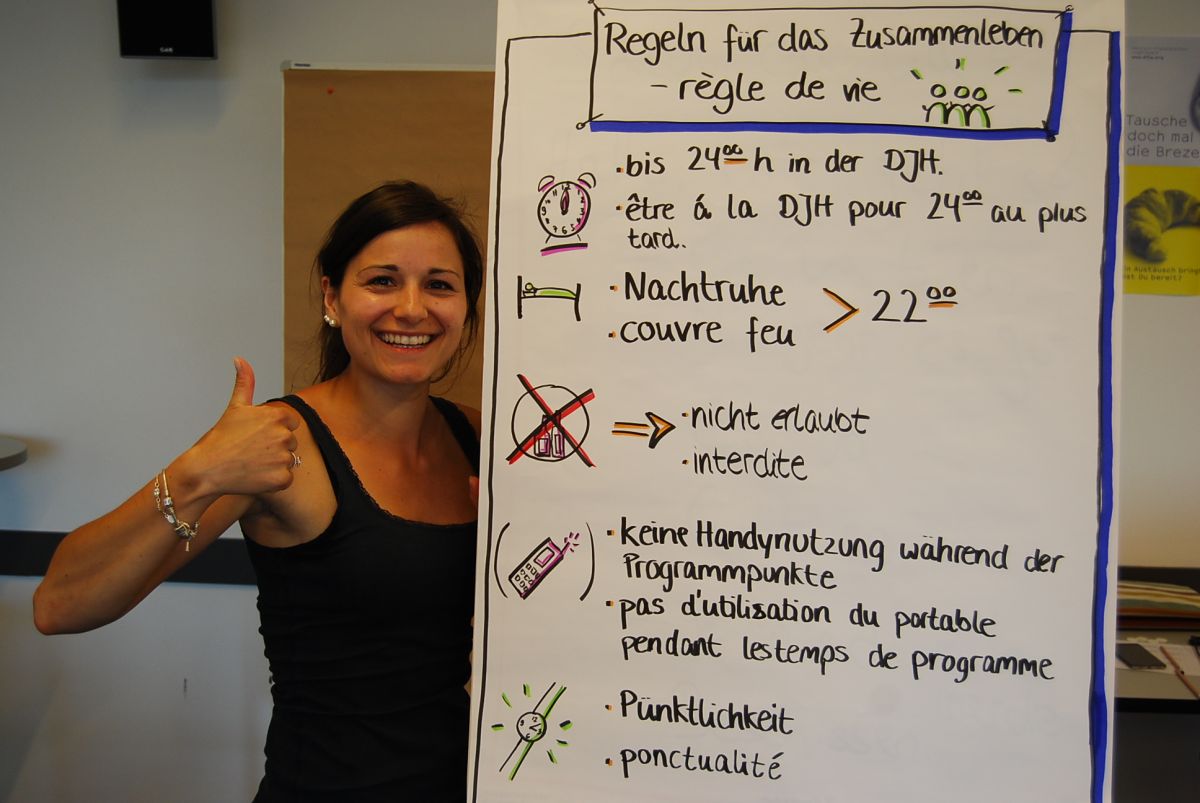 Regeln für das Zusammenleben
- règle de vie
• bis 24⁰⁰ h in der DJH.
• être á la DJH pour 24⁰⁰ au plus
tard.
• Nachtruhe
• couvre feu
> 22⁰⁰
• nicht erlaubt
• interdite
• keine Handynutzung während der
Programmpunkte
• pas d'utilisation du portable
pendant les temps de programme
• Pünktlichkeit
• ponctualité
Tausche
doch mal
die Breze
in Austausch bring
ist Du bereit?